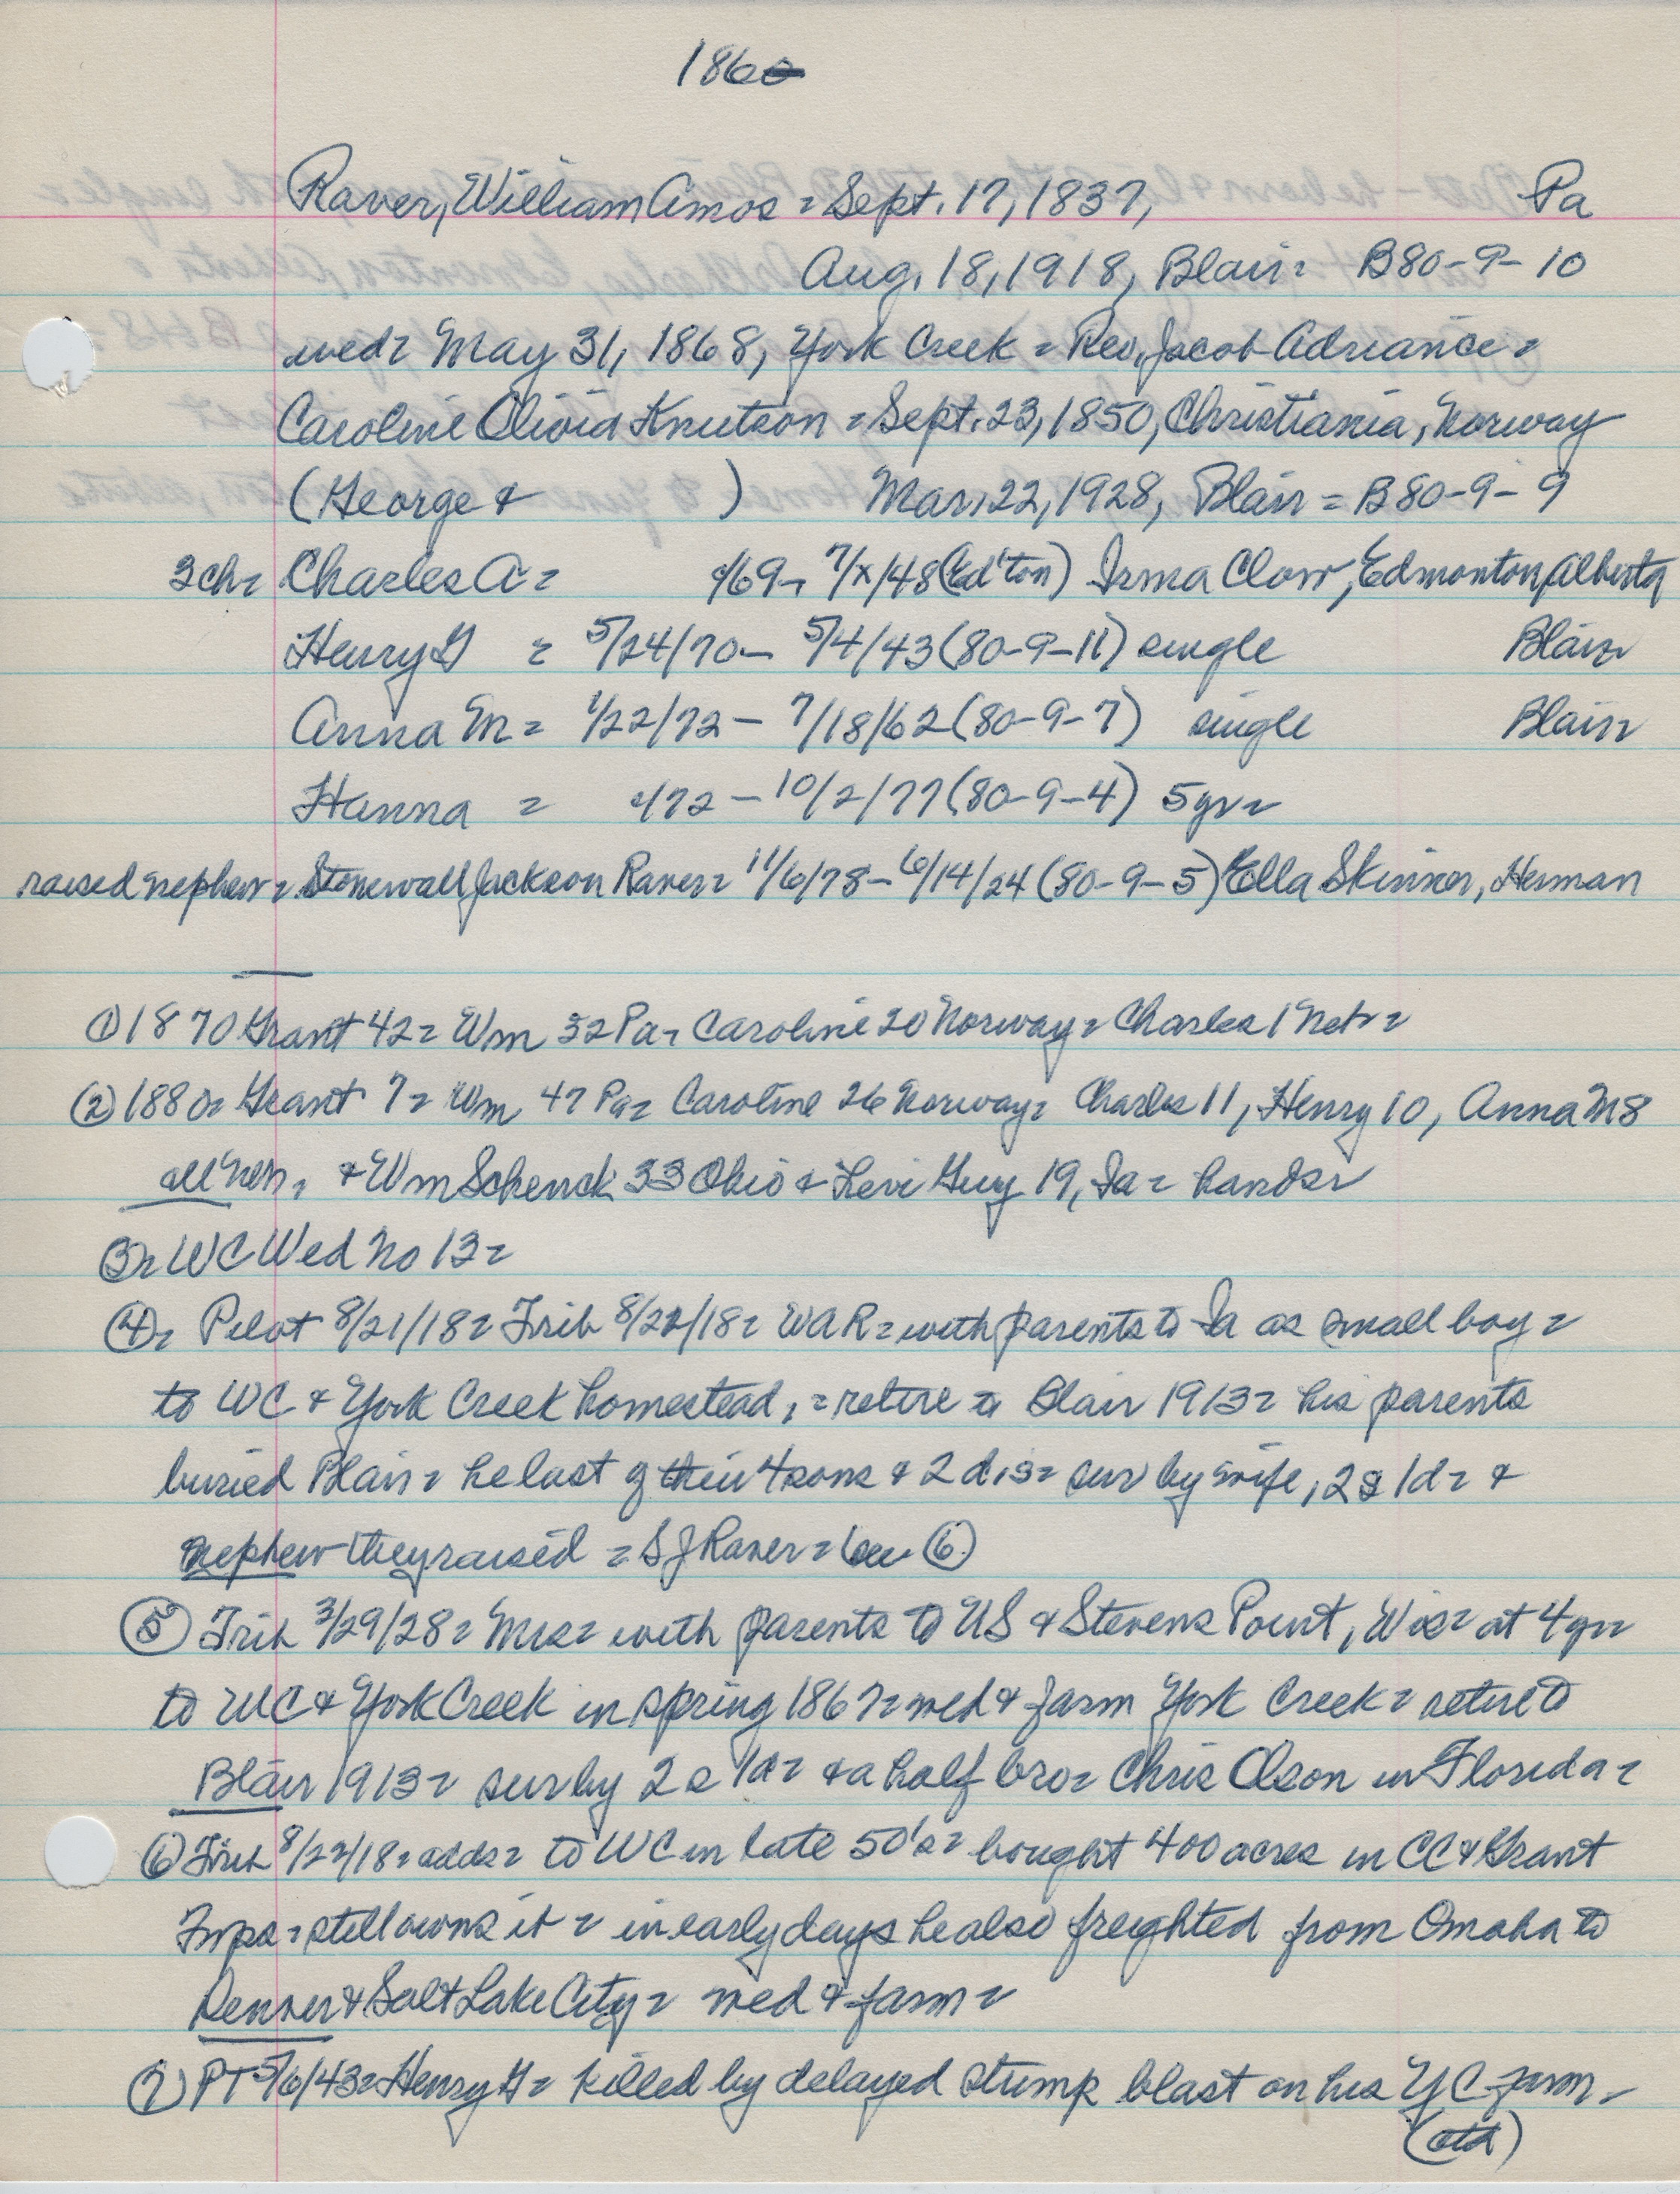 1860
Raver, William Amos = Sept. 17, 1837, Pa
Aug. 18, 1918, Blair = B80-9-10
wed = May 31, 1868, York Creek = Rev. Jacob Adriance =
Caroline Olivia Knutson = Sept. 23, 1850, Christiania, Norway
(George & ) Mar. 22, 1928, Blair = B80-9-9
3ch = Charles A = /69 - 7/x/48 (Ed'ton) Irma Clow, Edmonton, Alberta
Henry G = 5/24/70 - 5/4/43 (80-9-11) single Blair
Anna M = 1/22/72 - 7/18/62 (80-9-7) single Blair
Hanna = /72 - 10/2/77 (80-9-4) 5yr =
raised nephew = Stonewall Jackson Raver = 11/6/78 - 6/14/24 (80-9-5) Ella Skinner, Herman
① 1870 Grant 42 = Wm 32 Pa = Caroline 20 Norway = Charles 1 Neb =
② 1880 = Grant 7 = Wm 47 Pa = Caroline 26 Norway = Charles 11, Henry 10, Anna M 8
all Neb, & Wm Schenck 33 Ohio & Levi Guy 19, Ia = hands =
③ = WC Wed No 13 =
④ = Pilot 8/21/18 = Trib 8/22/18 = WAR = with parents to Ia as small boy =
to WC & York Creek homestead, = retire to Blair 1913 = his parents
buried Blair = he last of their 4 sons & 2 d is = sur by wife, 2s 1d = &
nephew they raised = S J Raver = see ⑥
⑤ Trib 3/29/28 = Mrs = with parents to US & Stevens Point, Wis = at 4yr =
to WC & York Creek in spring 1867 = wed & farm York Creek = retire to
Blair 1913 = sur by 2s 1d = & a half bro = Chris Olson in Florida =
⑥ Trib 8/22/18 = adds = to WC in late 50's = bought 400 acres in CC & Grant
Twps = still owns it = in early days he also freighted from Omaha to
Denver & Salt Lake City = wed & farm =
⑦ PT 5/6/43 = Henry G = killed by delayed stump blast on his YC farm =
(otd)